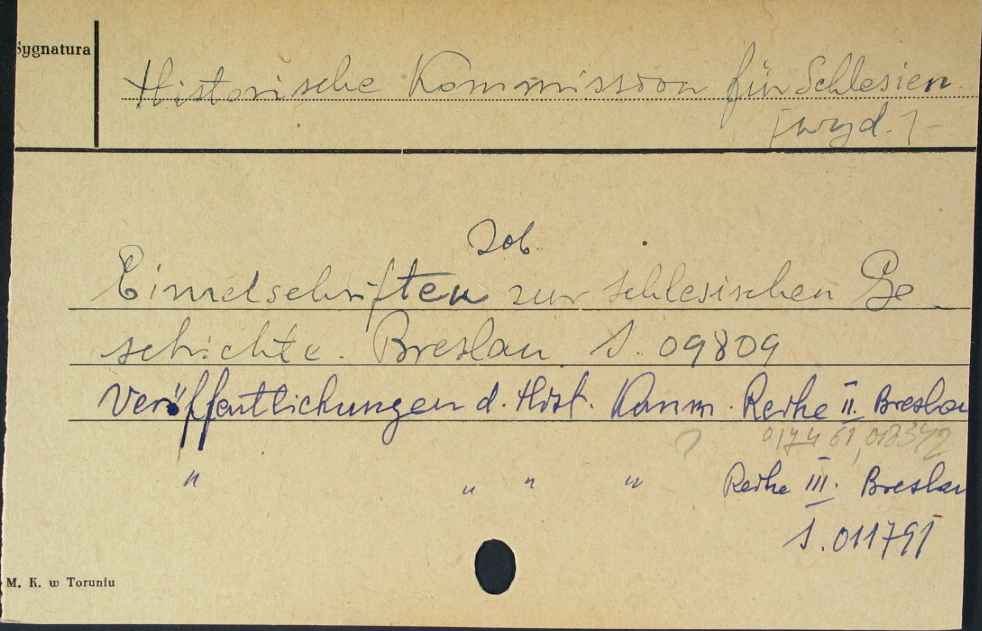 Sygnatura
Historische Kommission für Schlesien
[wyd.]
Zob.
Einzelschriften zur schlesischen Ge-
schichte. Breslau S. 09809
Veröffentlichungen d. Hist. Komm. Reihe II. Breslau
017461, 018342
" " " " Reihe III. Breslau
S. 011791
M. K. w Toruniu